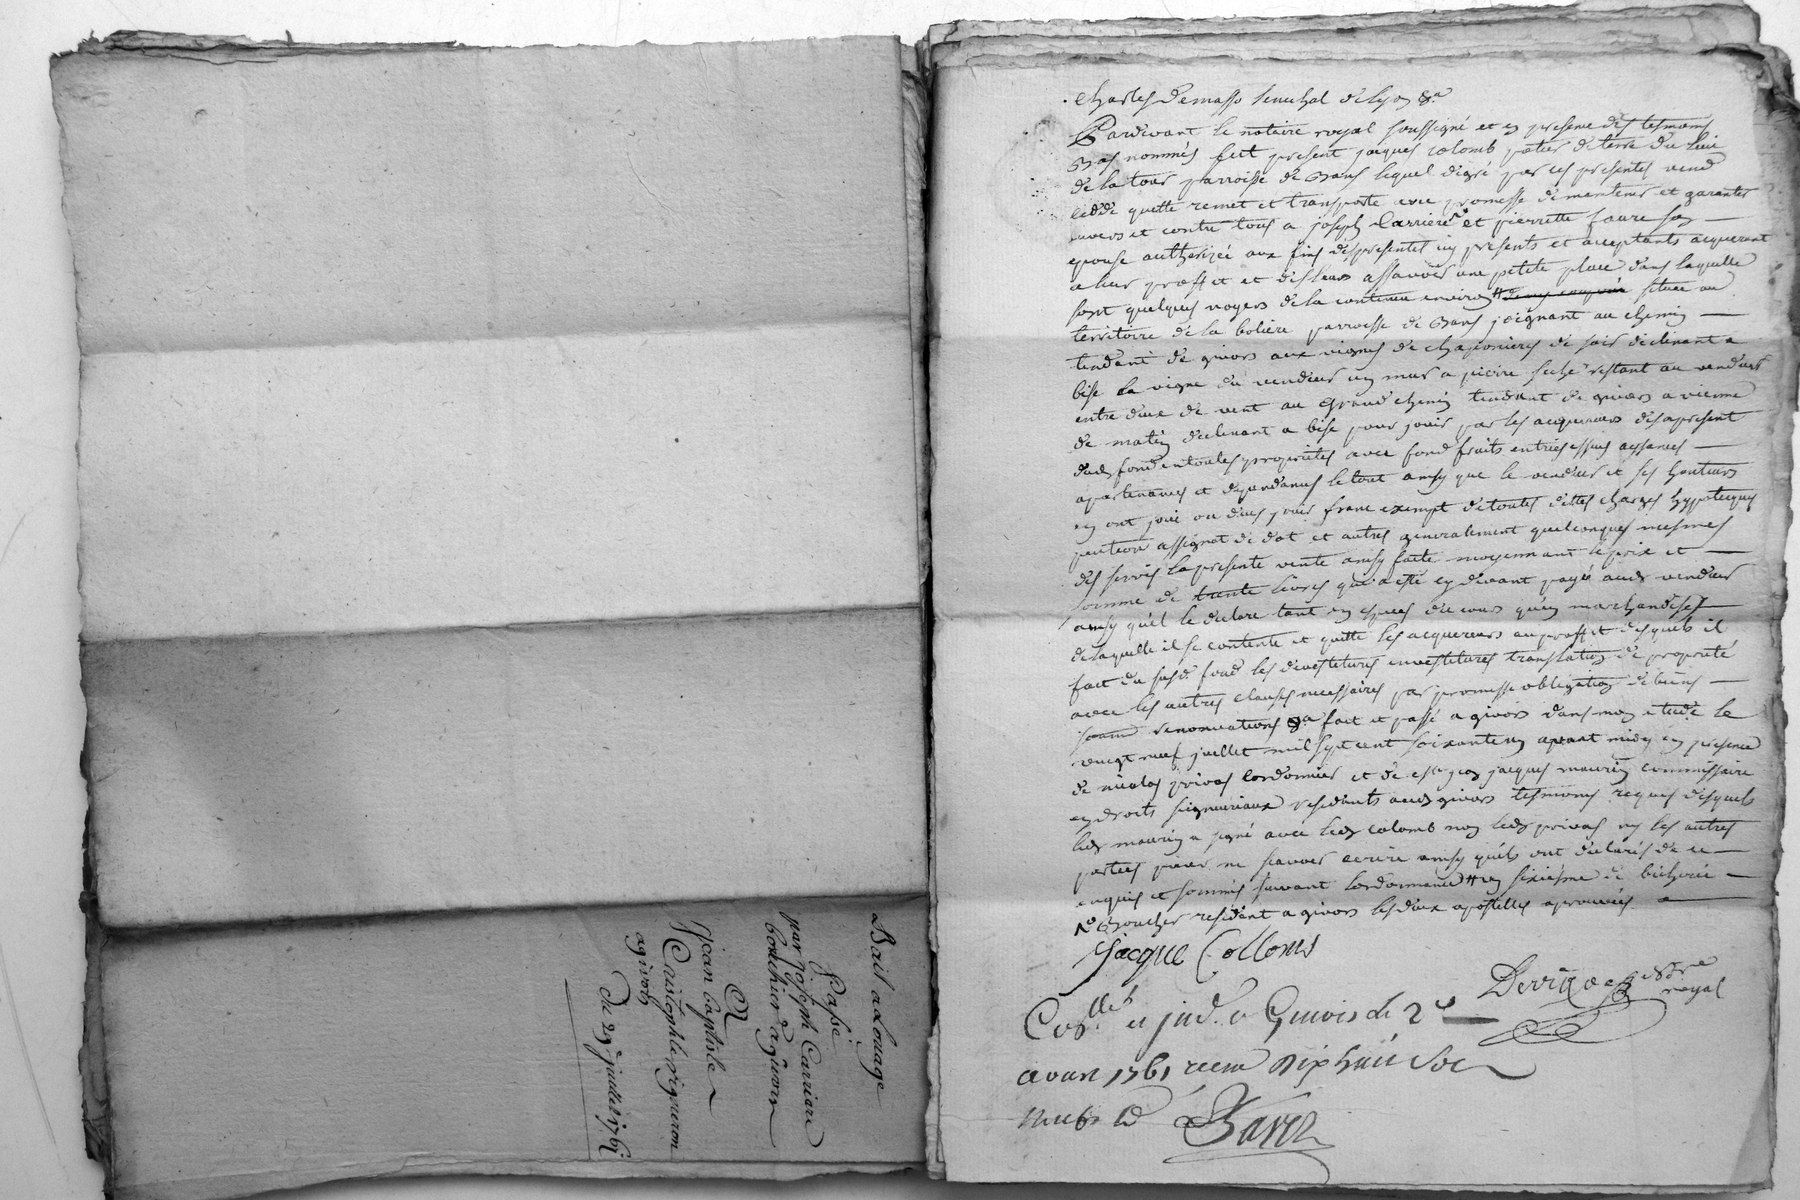 Bail a Louage
Passé
par joseph Carriere
bouchier a givors
A
jean baptiste
Cristophle vigneron
a givors
du 29 juillet 1761
Charles Demasso senechal de lyon &a
Pardevant le notaire royal soussigné et en presence des tesmoins
bas nommés fut present jacques colomb potier de terre du lieu
de la tour parroisse de bans lequel de gré par ces presentes vend
cedde quitte remet et transporte avec promesse de maintenir et garantir
envers et contre tous a joseph Carriere et pierrette faure son
epouse authorizée aux fins des presentes icy presents et acceptants acquerant
a leur proffit et des leurs assavoir une petite place dans laquelle
sont quelques noyers de la contenue environ située au
territoire de la boliere parroisse de bans joignant au chemin
tendant de givors aux vignes de chaponieres de soir declinant a
bise la vigne du vendeur un mur a pierre seche restant au vendeur
entre deux de vent au grand chemin tendant de givors a vienne
de matin declinant a bise pour jouir par les acquereurs des a present
dud. fond en toutes proprietés avec fond fruits entrées issues aysances
apartenances et dependances le tout ainsy que le vendeur et ses hauteurs
en ont joui ou deu jouir franc exempt de toutes dettes charges hypoteques
pention assignat de dot et autres generalement quelconques mesmes
des servis la presente vente ainsy faite moyennant le prix et
somme de trente livres qui a esté cy devant payé aud. vendeur
ainsy quil le declare tant en especes du cours quen marchandises
de laquelle il se contente et quitte les acquereurs au proffit desquels il
fait du susd. fond les devestitures investitures translation de proprieté
avec les autres clauses necessaires par promesse obligation de biens
renonciations &a fait et passé a givors dans mon etude le
vingt neuf juillet mil sept cent soixante un avant midy en presence
de nicolas privas cordonnier et de jacques maurin commissaire
en droits seigneuriaux residents aud. givors tesmoins requis desquels
led. maurin a signé avec led. colomb non led. privas ny les autres
parties pour ne scavoir ecrire ainsy quils ont declarés de ce
enquis et sommés suivant lordonnance # un sixiesme de bicherée
# boucher residant a givors les deux apostilles aprouvées
jacque Collomb
Devigne
royal
Con.llé et ins.é a Givors le 2e
aoust 1761 receu dix huit sols